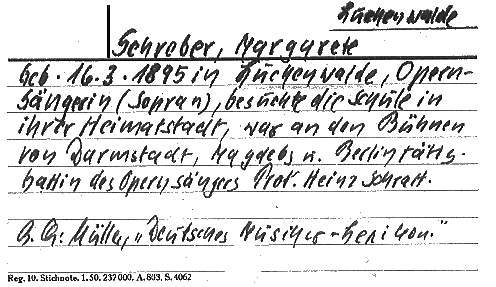 Luckenwalde
Schreber, Margarete
Geb. 16.3.1895 in Luckenwalde, Opern-
sängerin (Sopran), besuchte die Schule in
ihrer Heimatstadt, war an den Bühnen
von Darmstadt, Magdebg u. Berlin tätig.
Gattin des Opernsängers Prof. Heinz
Müller, "Deutsches Musiker-Lexikon."
Reg. 10. Stichnote. 1. 50. 237000. A. 803. S. 4062